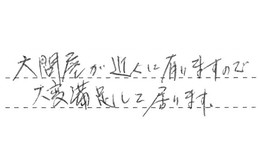 大問屋が近くに有りますので
大変満足して居ります。